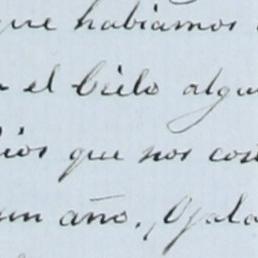 que habiamos
el cielo algu
Dios que nos cos
un año. Ojala